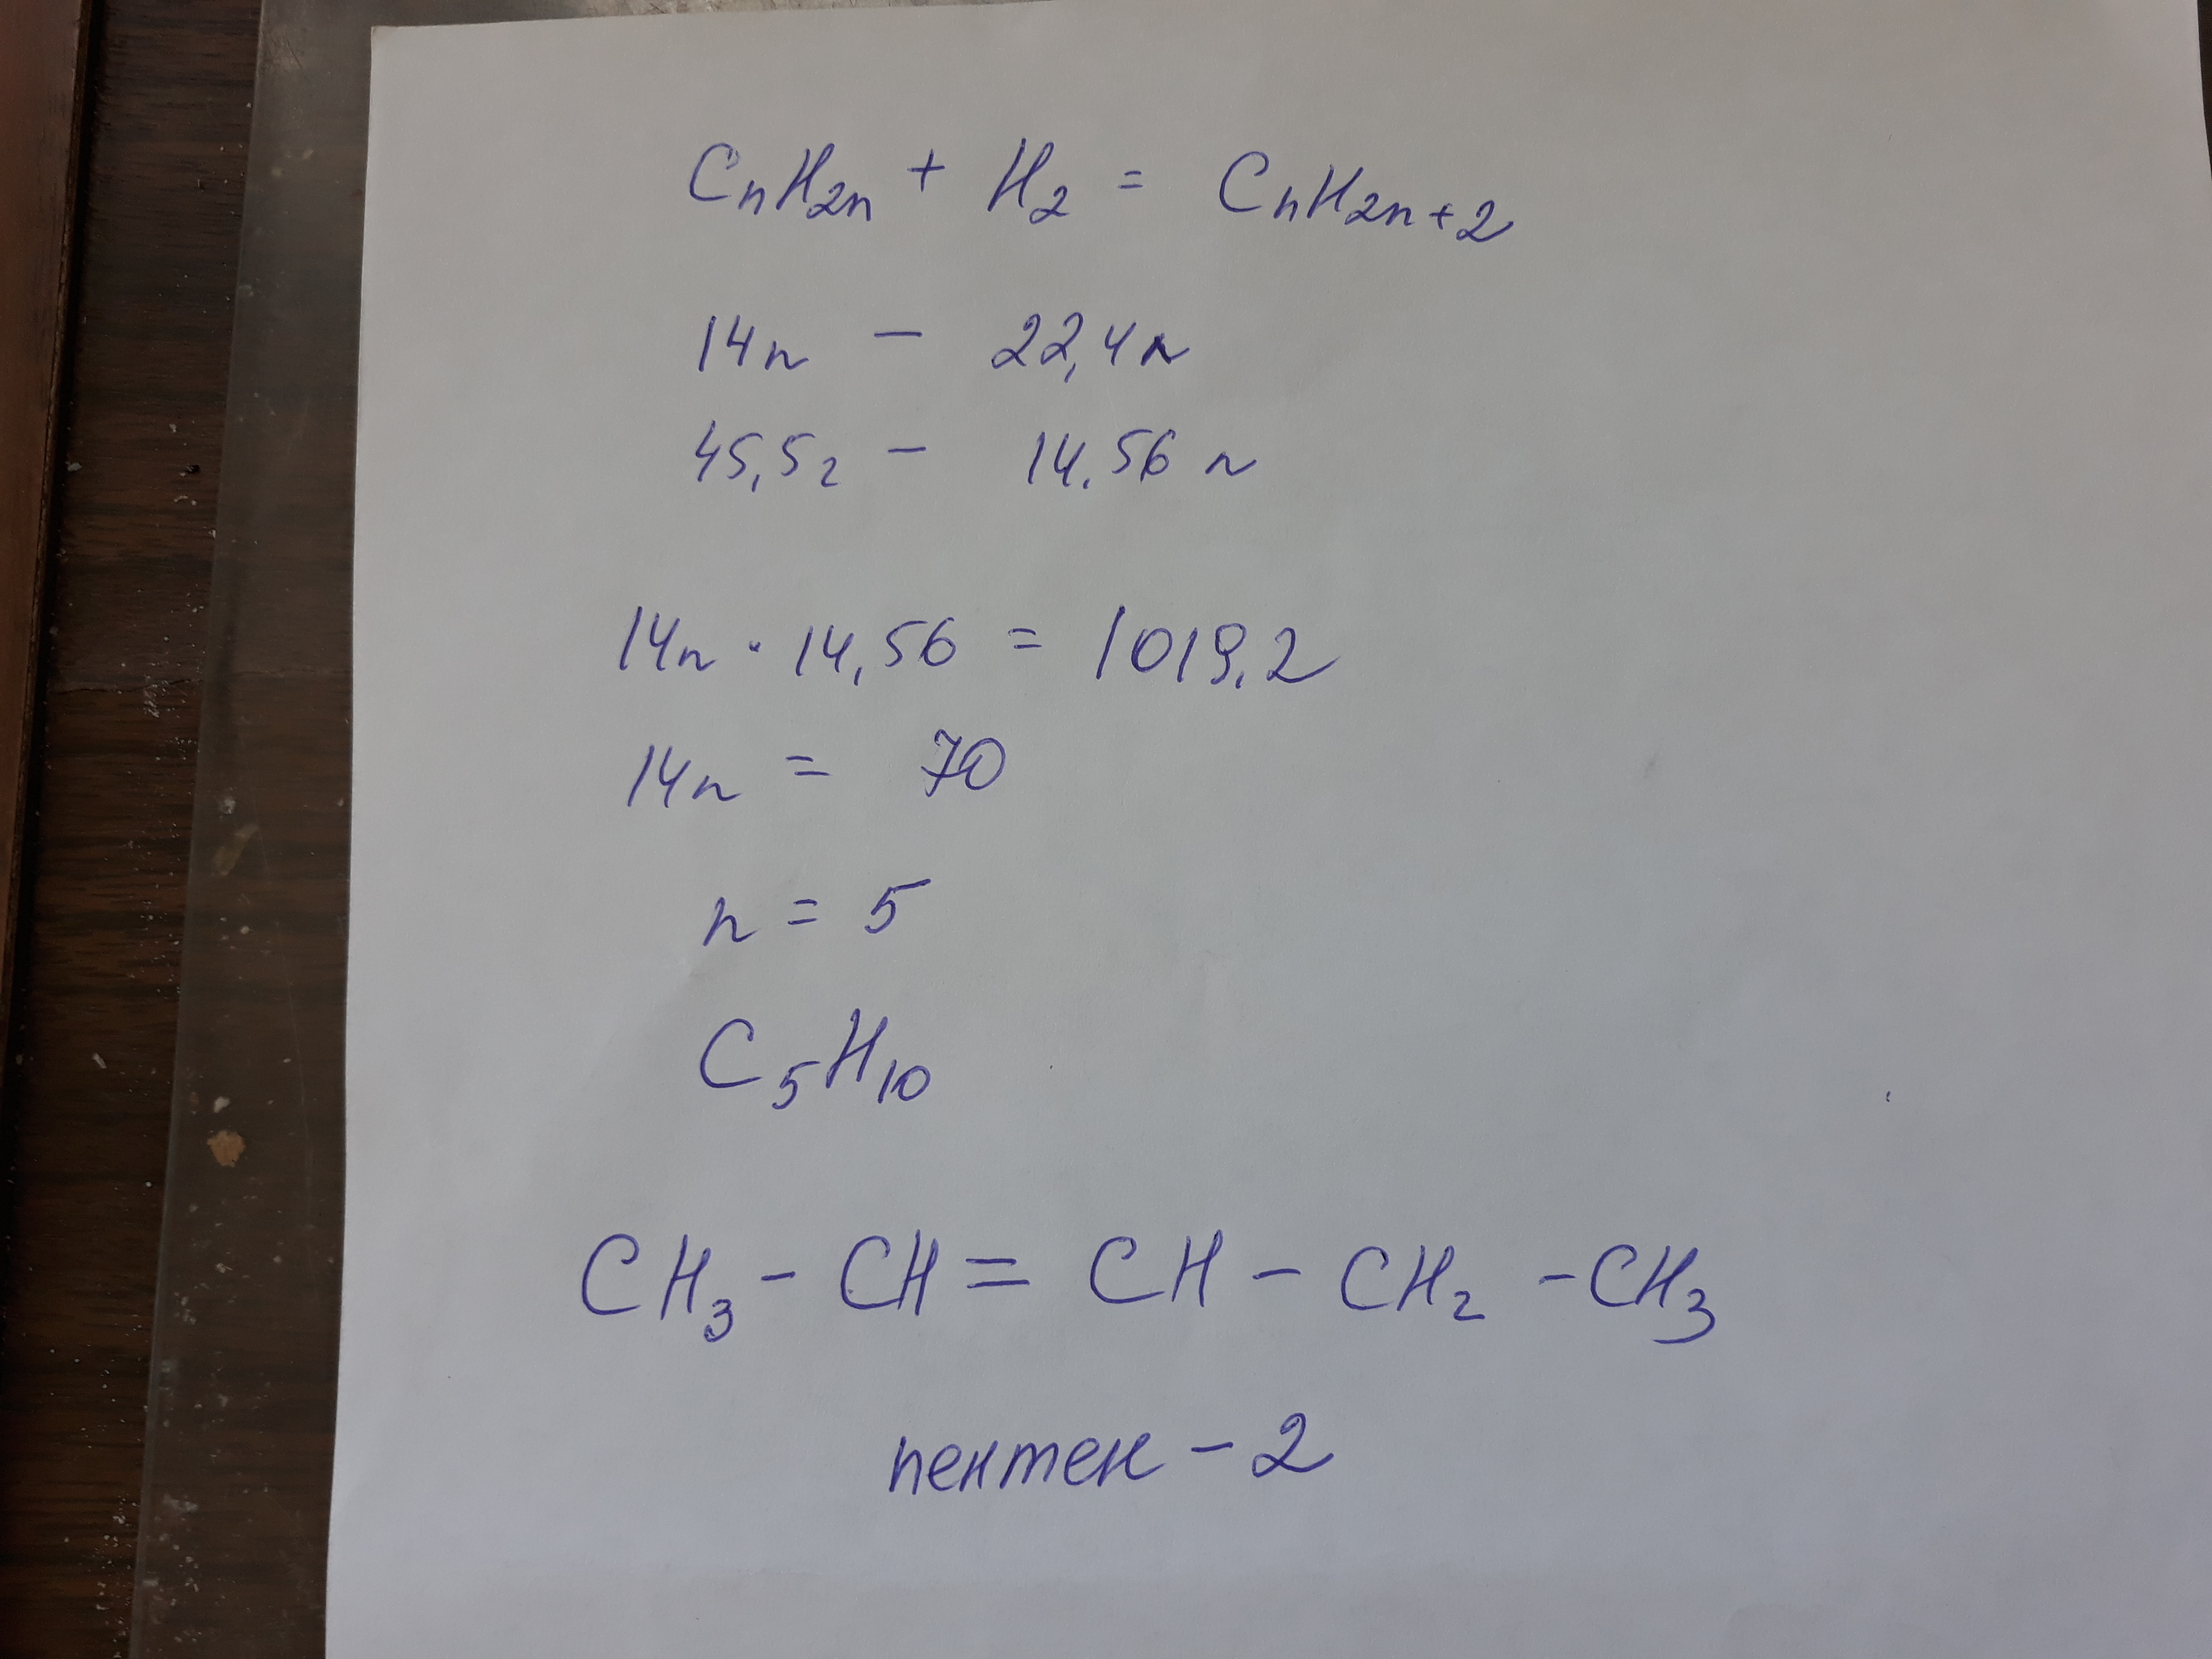 CnH2n + H2 = CnH2n+2
14n – 22,4л
45,5г – 14,56 л
14n · 14,56 = 1019,2
14n = 70
n = 5
C5H10
CH3 – CH = CH – CH2 – CH3
пентен – 2